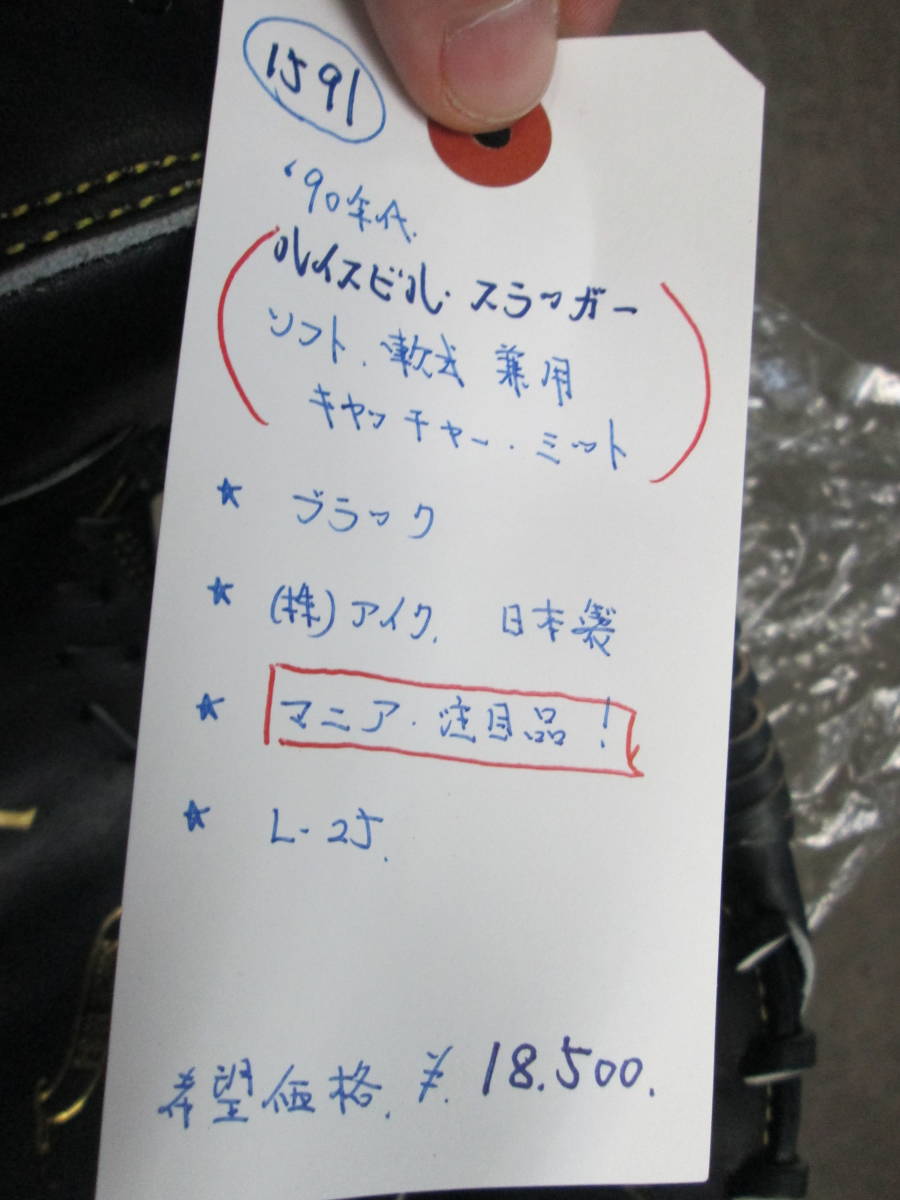 1591
'90年代.
ルイスビル・スラッガー
ソフト.軟式 兼用
キャッチャー・ミット
★ ブラック
★ (株)アイク. 日本製
★ マニア・注目品!
★ L-25.
希望価格.¥.18.500.